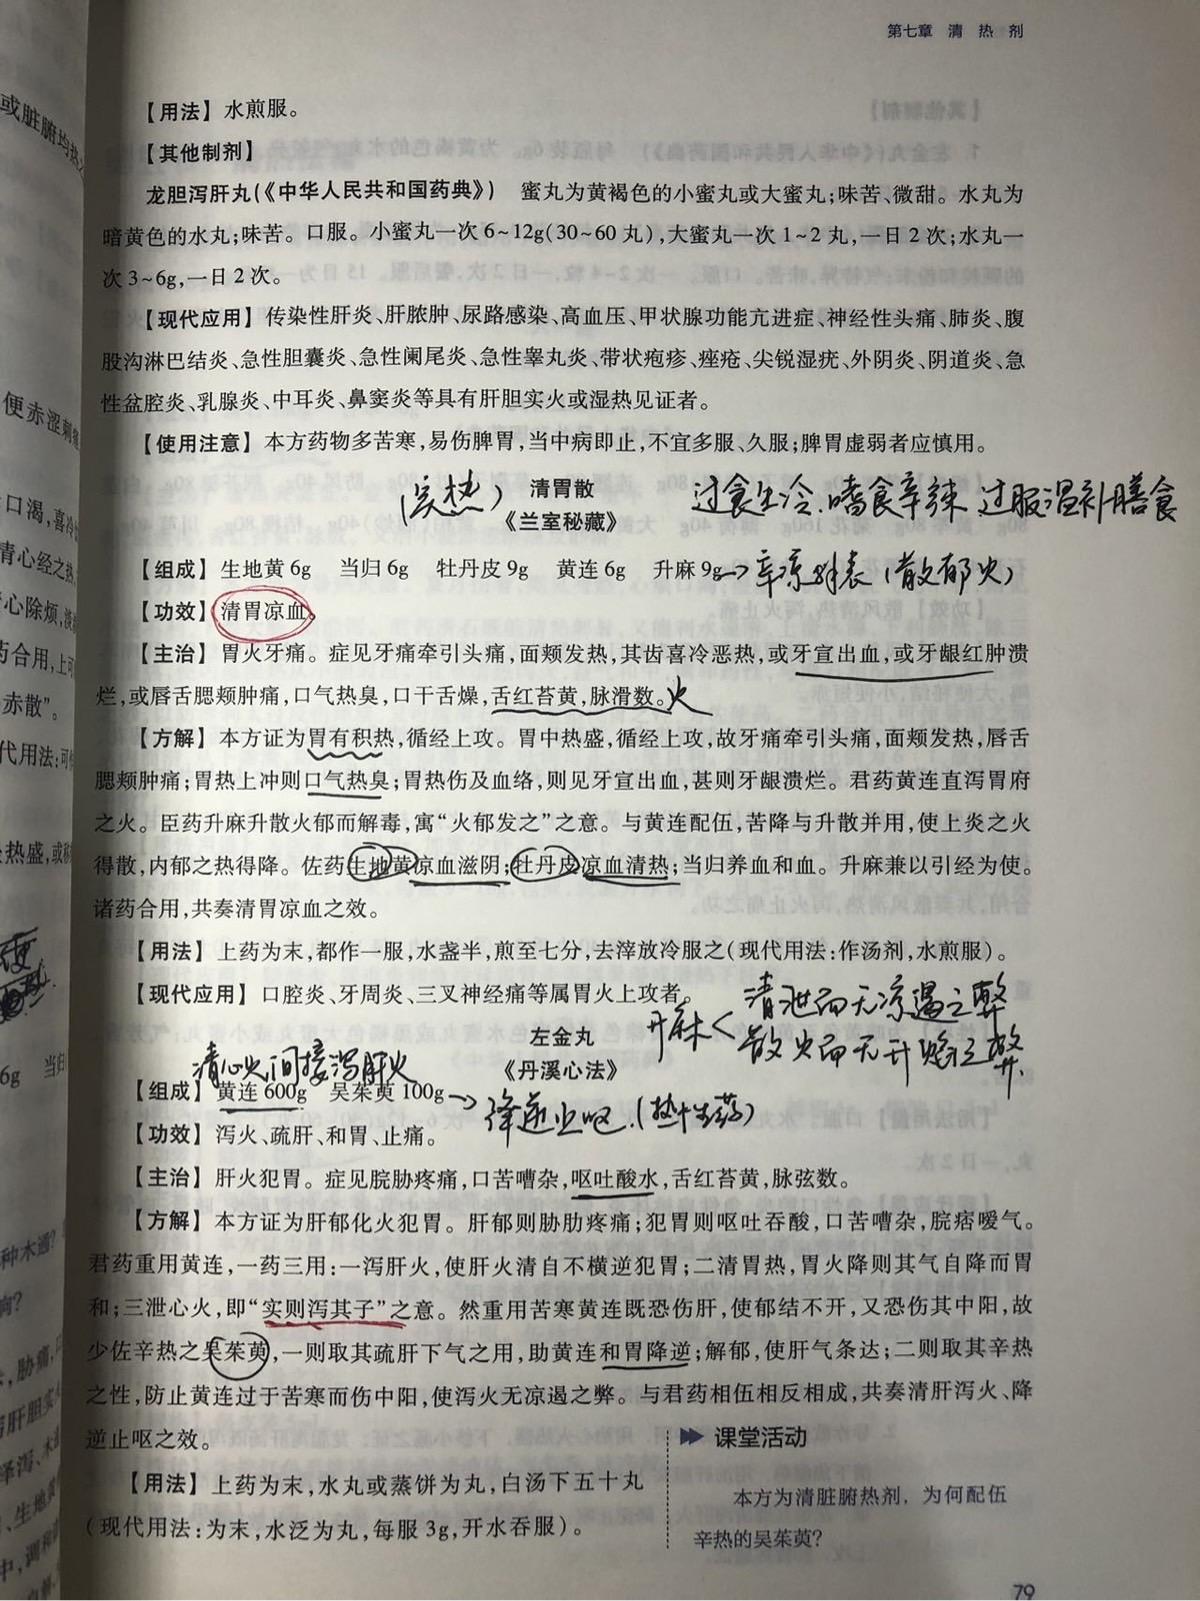 第七章 清热剂
或脏腑均热
【用法】水煎服。
【其他制剂】
龙胆泻肝丸(《中华人民共和国药典》) 蜜丸为黄褐色的小蜜丸或大蜜丸;味苦、微甜。水丸为
暗黄色的水丸;味苦。口服。小蜜丸一次6~12g(30~60丸),大蜜丸一次1~2丸,一日2次;水丸一
次3~6g,一日2次。
【现代应用】传染性肝炎、肝脓肿、尿路感染、高血压、甲状腺功能亢进症、神经性头痛、肺炎、腹
股沟淋巴结炎、急性胆囊炎、急性阑尾炎、急性睾丸炎、带状疱疹、痤疮、尖锐湿疣、外阴炎、阴道炎、急
性盆腔炎、乳腺炎、中耳炎、鼻窦炎等具有肝胆实火或湿热见证者。
便赤涩刺痛
【使用注意】本方药物多苦寒,易伤脾胃,当中病即止,不宜多服、久服;脾胃虚弱者应慎用。
(实热) 清胃散 过食生冷、嗜食辛辣 过服温补膳食
口渴,喜冷
《兰室秘藏》
青心经之热
【组成】生地黄6g 当归6g 牡丹皮9g 黄连6g 升麻9g→辛凉解表(散郁火)
心除烦,
【功效】清胃凉血。
药合用,上可
【主治】胃火牙痛。症见牙痛牵引头痛,面颊发热,其齿喜冷恶热,或牙宣出血,或牙龈红肿溃
赤散”。
烂,或唇舌腮颊肿痛,口气热臭,口干舌燥,舌红苔黄,脉滑数。火
代用法:可
【方解】本方证为胃有积热,循经上攻。胃中热盛,循经上攻,故牙痛牵引头痛,面颊发热,唇舌
腮颊肿痛;胃热上冲则口气热臭;胃热伤及血络,则见牙宣出血,甚则牙龈溃烂。君药黄连直泻胃府
之火。臣药升麻升散火郁而解毒,寓“火郁发之”之意。与黄连配伍,苦降与升散并用,使上炎之火
热盛,或
得散,内郁之热得降。佐药生地黄凉血滋阴;牡丹皮凉血清热;当归养血和血。升麻兼以引经为使。
诸药合用,共奏清胃凉血之效。
【用法】上药为末,都作一服,水盏半,煎至七分,去滓放冷服之(现代用法:作汤剂,水煎服)。
【现代应用】口腔炎、牙周炎、三叉神经痛等属胃火上攻者。
升麻< 清泄而无凉遏之弊
散火而无升焰之弊
左金丸
清心火,间接泻肝火
《丹溪心法》
6g 当归
【组成】黄连600g 吴茱萸100g→降逆止呕.(热性药)
【功效】泻火、疏肝、和胃、止痛。
【主治】肝火犯胃。症见脘胁疼痛,口苦嘈杂,呕吐酸水,舌红苔黄,脉弦数。
种木通?
【方解】本方证为肝郁化火犯胃。肝郁则胁肋疼痛;犯胃则呕吐吞酸,口苦嘈杂,脘痞嗳气。
君药重用黄连,一药三用:一泻肝火,使肝火清自不横逆犯胃;二清胃热,胃火降则其气自降而胃
和;三泄心火,即“实则泻其子”之意。然重用苦寒黄连既恐伤肝,使郁结不开,又恐伤其中阳,故
少佐辛热之吴茱萸,一则取其疏肝下气之用,助黄连和胃降逆;解郁,使肝气条达;二则取其辛热
,胁痛,
之性,防止黄连过于苦寒而伤中阳,使泻火无凉遏之弊。与君药相伍相反相成,共奏清肝泻火、降
肝胆实
逆止呕之效。
泽泻、木
【用法】上药为末,水丸或蒸饼为丸,白汤下五十丸
、生地黄
(现代用法:为末,水泛为丸,每服3g,开水吞服)。
中,调和
课堂活动
本方为清脏腑热剂,为何配伍
辛热的吴茱萸?
79